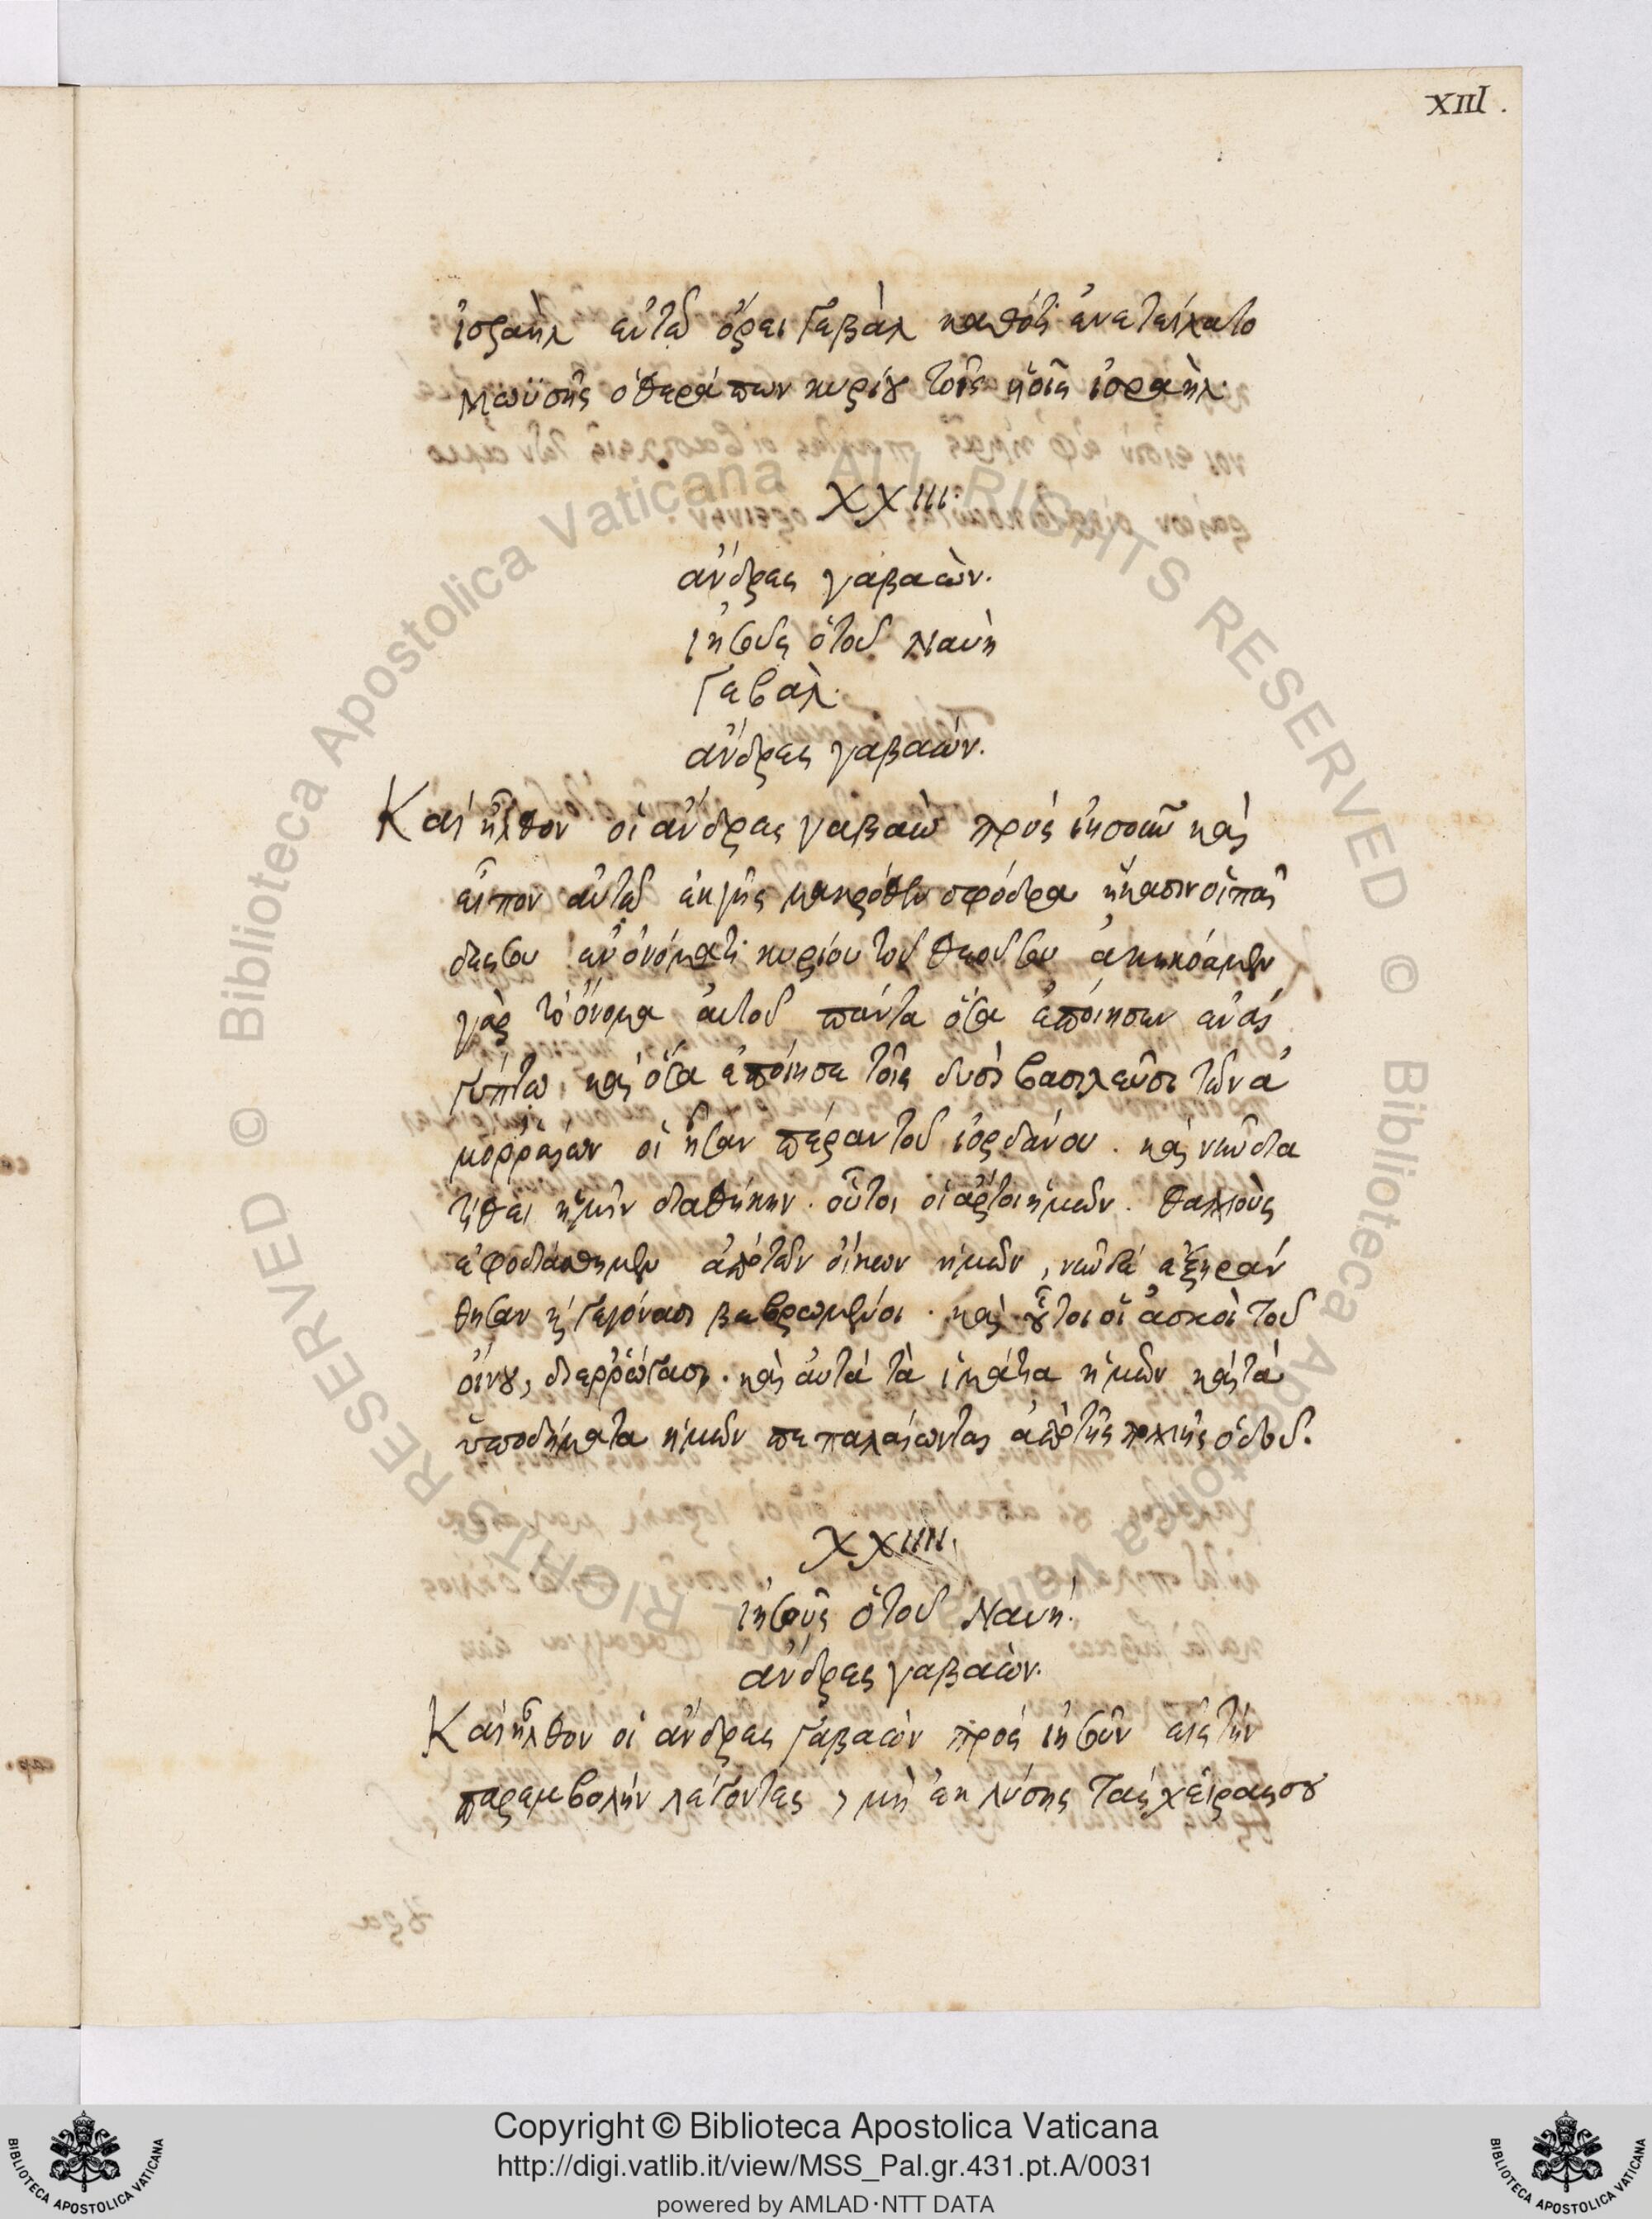 XIII.
ἰσραὴλ ἐν τῶ ὄρει Γεβὰλ καθότι ἐνετείλατο
Μωϋσῆς ὁ θεράπων κυρίου τοῖς ἡοῖς ἰσραὴλ.
XXIII.
ἄνδρες γαβαὼν.
ἰησοῦς ὁ τοῦ Ναυὴ
Γεβαλ.
ἄνδρες γαβαών.
Καὶ ἦλθον οἱ ἄνδρες γαβαὼ πρὸς ἰησοῦν καὶ
εἶπον αὐτῶ ἐκ γῆς μακρόθεν σφόδρα ἥκασιν οἱ παῖ
δές σου ἐν ὀνόματι κυρίου τοῦ θεοῦ σου ἀκηκόαμεν
γὰρ τὸ ὄνομα αὐτοῦ πάντα ὅσα ἐποίησεν ἐν αἰ
γύπτω, καὶ ὅσα ἐποίησε τοῖς δυσὶ βασιλεῦσι τῶν ἀ
μορραίων οἳ ἦσαν πέραν τοῦ ἰορδάνου. καὶ νῦν δια
τίθει ἡμῖν διαθήκην. οὗτοι οἱ ἄρτοι ἡμῶν. θαλλοὺς
ἐφοδιάσθημεν ἀπὸ τῶν οἴκων ἡμῶν, νῦν δὲ ἐξηράν
θησαν καὶ γεγόνασι βεβρωμένοι. καὶ οὗτοι οἱ ἀσκοὶ τοῦ
οἴνου, διερρώγασι. καὶ αὐτὰ τὰ ἱμάτια ἡμῶν καὶ τὰ
ὑποδήματα ἡμῶν πεπαλαίωνται ἀπὸ τῆς πολλῆς ὁδοῦ.
XXIIII.
ἰησοῦς ὁ τοῦ Ναυή.
ἄνδρες γαβαὼν.
Καὶ ἦλθον οἱ ἄνδρες γαβαὼν πρὸς ἰησοῦν εἰς τὴν
παρεμβολὴν λέγοντες, μὴ ἐκλύσης τὰς χεῖρας σου
© Biblioteca Apostolica Vaticana ALL RIGHTS RESERVED
Copyright © Biblioteca Apostolica Vaticana
http://digi.vatlib.it/view/MSS_Pal.gr.431.pt.A/0031
powered by AMLAD·NTT DATA
BIBLIOTECA APOSTOLICA VATICANA
BIBLIOTECA APOSTOLICA VATICANA